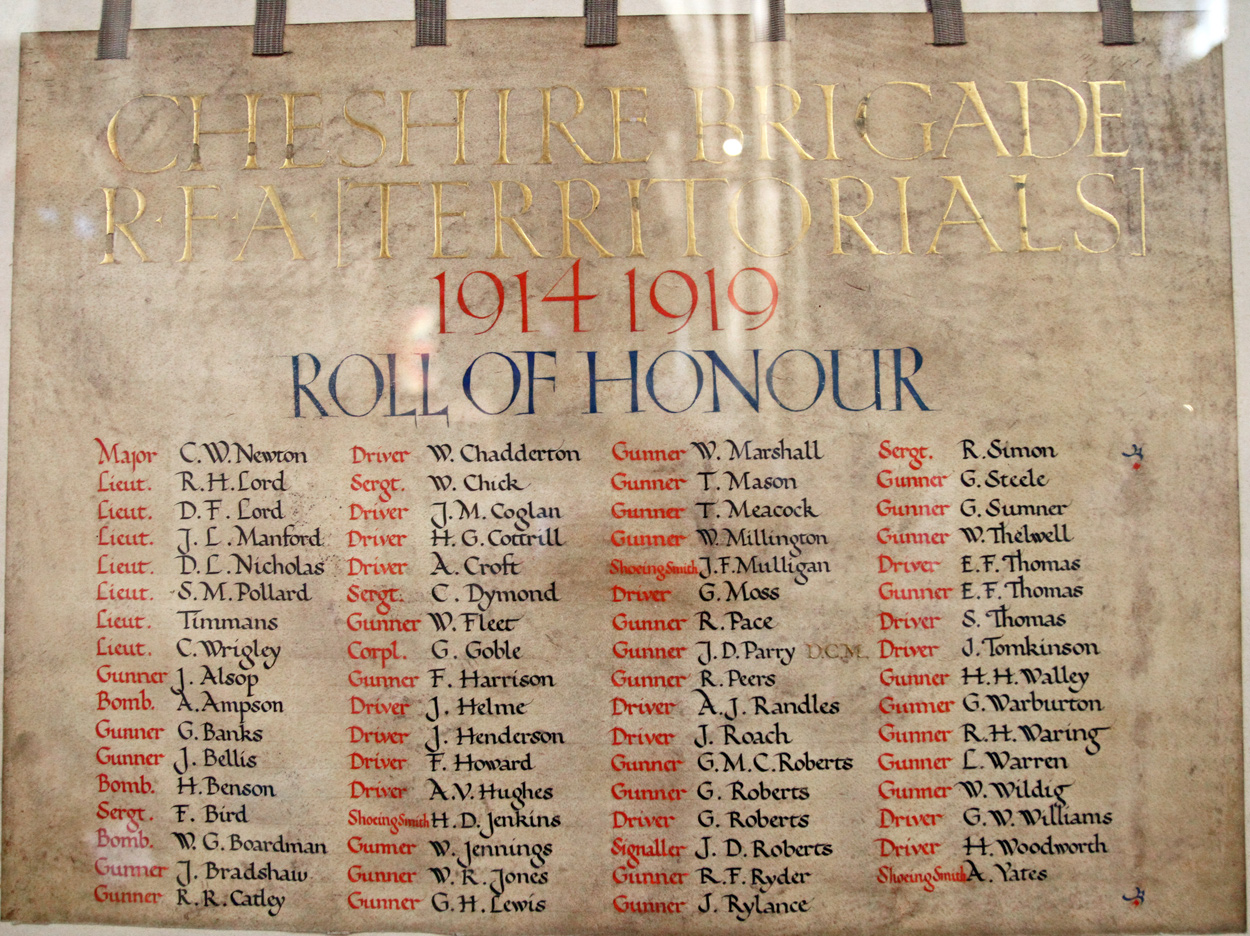 CHESHIRE BRIGADE
R·F·A·[TERRITORIALS]
1914 1919
ROLL OF HONOUR
Major C.W.Newton
Lieut. R.H.Lord
Lieut. D.F.Lord
Lieut. J.L.Manford
Lieut. D.L.Nicholas
Lieut. S.M.Pollard
Lieut. Timmans
Lieut. C.Wrigley
Gunner J. Alsop
Bomb. A.Ampson
Gunner G.Banks
Gunner J. Bellis
Bomb. H.Benson
Sergt. F. Bird
Bomb. W.G.Boardman
Gunner J. Bradshaw
Gunner R.R.Catley
Driver W. Chadderton
Sergt. W. Chick
Driver J.M.Coglan
Driver H.G.Cottrill
Driver A. Croft
Sergt. C. Dymond
Gunner W. Fleet
Corpl. G. Goble
Gunner F. Harrison
Driver J. Helme
Driver J. Henderson
Driver F. Howard
Driver A.V.Hughes
Shoeing Smith H.D.Jenkins
Gunner W. Jennings
Gunner W.R.Jones
Gunner G.H.Lewis
Gunner W. Marshall
Gunner T. Mason
Gunner T. Meacock
Gunner W. Millington
Shoeing Smith J.F.Mulligan
Driver G.Moss
Gunner R.Pace
Gunner J.D.Parry D.C.M.
Gunner R.Peers
Driver A.J.Randles
Driver J. Roach
Gunner G.M.C.Roberts
Gunner G. Roberts
Driver G. Roberts
Signaller J.D.Roberts
Gunner R.F.Ryder
Gunner J. Rylance
Sergt. R.Simon
Gunner G.Steele
Gunner G.Sumner
Gunner W.Thelwell
Driver E.F.Thomas
Gunner E.F.Thomas
Driver S. Thomas
Driver J.Tomkinson
Gunner H.H.Walley
Gunner G.Warburton
Gunner R.H.Waring
Gunner L.Warren
Gunner W.Wildig
Driver G.W.Williams
Driver H.Woodworth
Shoeing Smith A. Yates